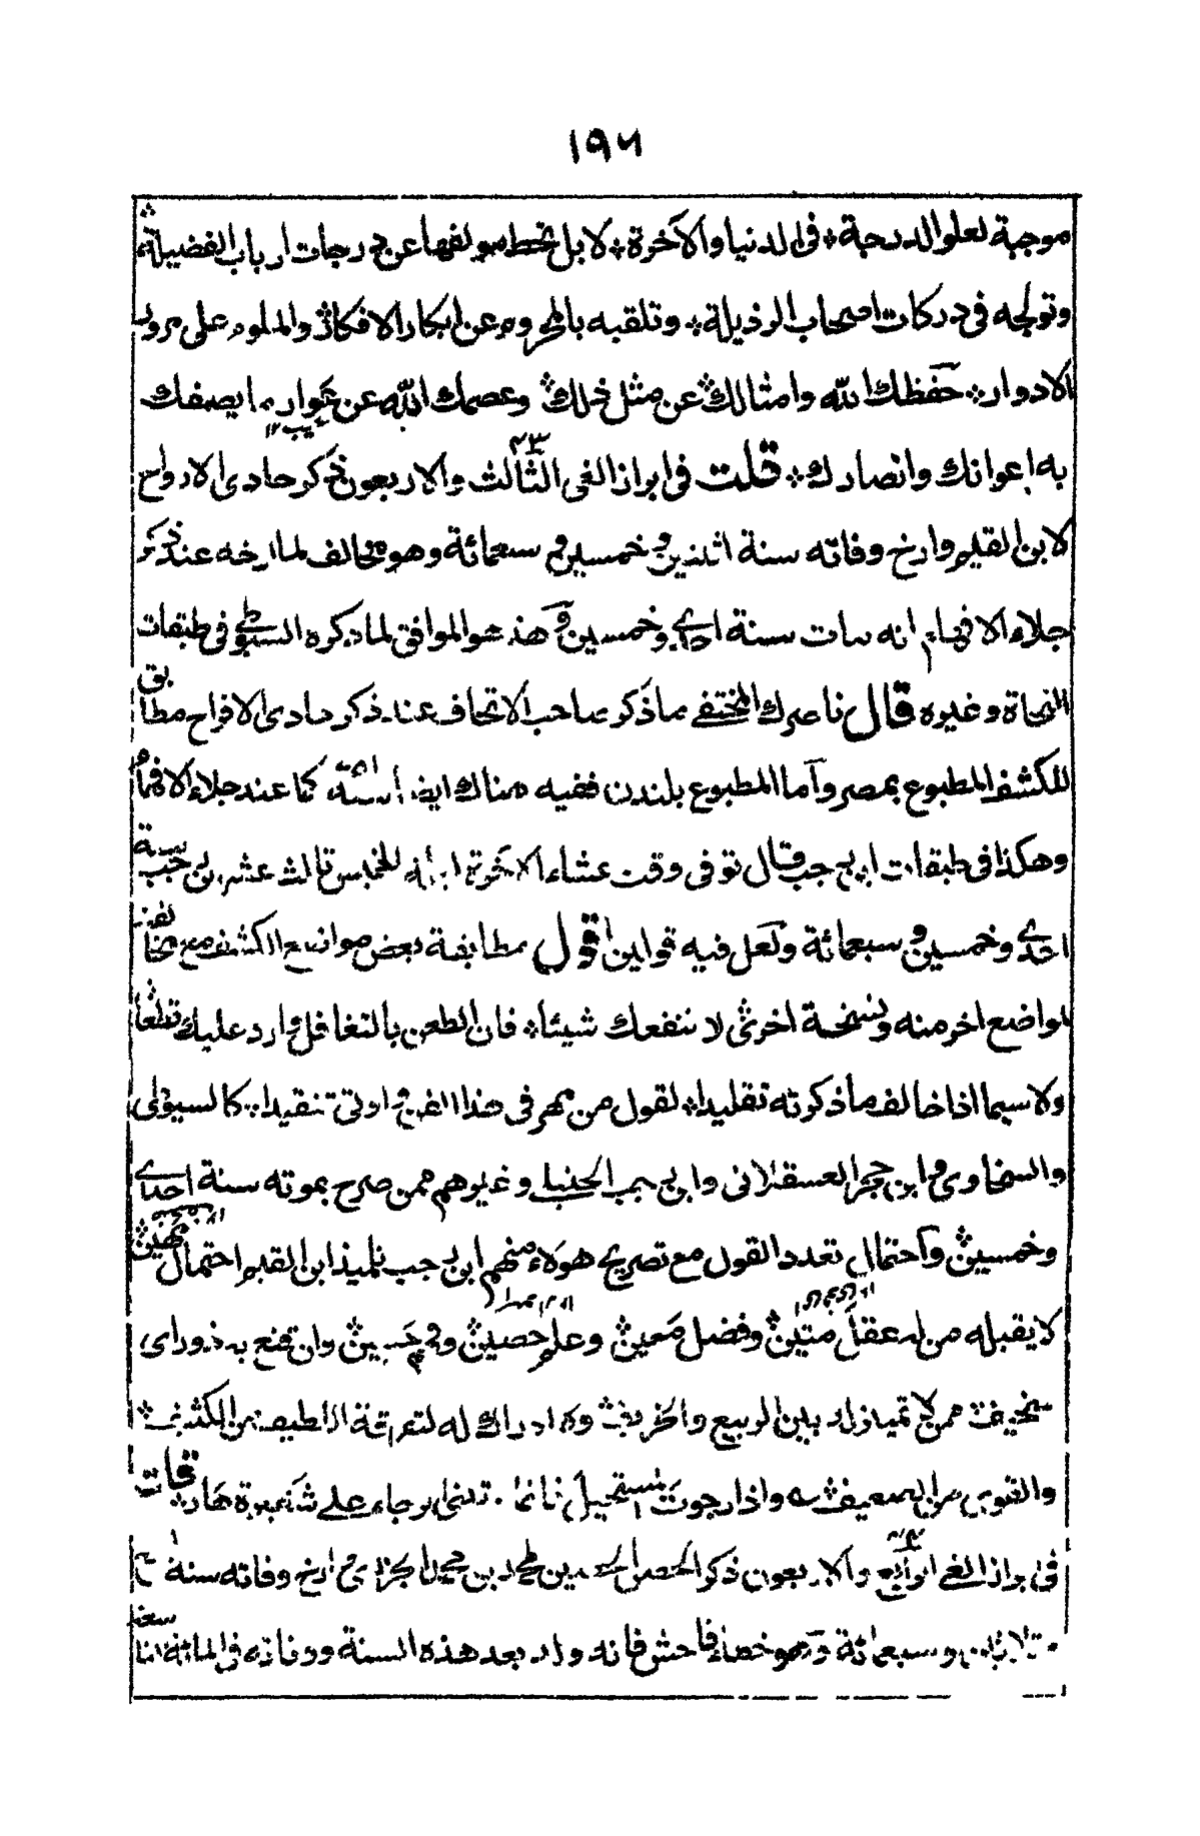 ١٩٦
موجبة لعلو الدرجة ۞ في الدنيا والآخرة ۞ لا بل تحط مؤلفها عن درجات ارباب الفضيلة ۞
وتولجه في دركات اصحاب الرذيلة ۞ وتلقبه بالمحروم عن ابكار الافكار ۞ والملوم على مرور
الادوار ۞ حفظك الله وامثالك ۞ عن مثل ذلك ۞ وعصمك الله عن عوار ما يصفك
عيب ١٢
به اعوانك وانصارك ۞ قلت في ابراز الغي الثالث والاربعون ذكر حادي الارواح
٤٣
لابن القيم وارخ وفاته سنة اثنين وخمسين وسبعمائة وهو مخالف لما ارخه عند ذكر
جلاء الافهام انه مات سنة احدى وخمسين وهذا هو الموافق لما ذكره السيوطي في طبقات
النحاة وغيره قال ناصرك المختفي ما ذكر صاحب الاتحاف عند ذكر حادي الافراح مطابق
للكشف المطبوع بمصر وأما المطبوع بلندن ففيه هناك ايضا سنة كما عند جلاء الافهام
وهكذا في طبقات ابن رجب قال توفي وقت عشاء الآخرة ليلة الخميس ثالث عشر رجب سنة
احدى وخمسين وسبعمائة ولعل فيه قولين اقول مطابقة بعض مواضع الكشف مع مخالفته
لمواضع اخر منه ونسخة اخرى لا تنفعك شيئا ۞ فان الطعن بالتغافل وارد عليك قطعا ۞
ولا سيما اذا خالف ما ذكرته تقليدا ۞ لقول من مهر في هذا الفن واوتي تنقيدا ۞ كالسيوطي
والسخاوي وابن حجر العسقلاني وابن رجب الحنبلي وغيرهم ممن صرح بموته سنة احدى
وخمسين ۞ واحتمال تعدد القول مع تصريح هؤلاء ومنهم ابن رجب تلميذ ابن القيم احتمال مهين ۞
لا يقبله من له عقل متين ۞ وفضل معين ۞ وعلم حصين ۞ وفهم حسين ۞ وان قنع به ذو راى
سخيف ۞ ممن لا تمياز له بين الربيع والخريف ۞ ولا ادراك له لتفرقة اللطيف من الكثيف ۞
والقوي من الضعيف ۞ واذا رجوت المستحيل فانما . تبني الرجاء على شفير هار ۞ قلت
في ابراز الغي الرابع والاربعون ذكر الحصن الحصين لمحمد بن محمد الجزري وارخ وفاته سنة
٤٤
وثلاثين وسبعمائة وهو خطاء فاحش فانه ولد بعد هذه السنة ووفاته في المائة التاسعة